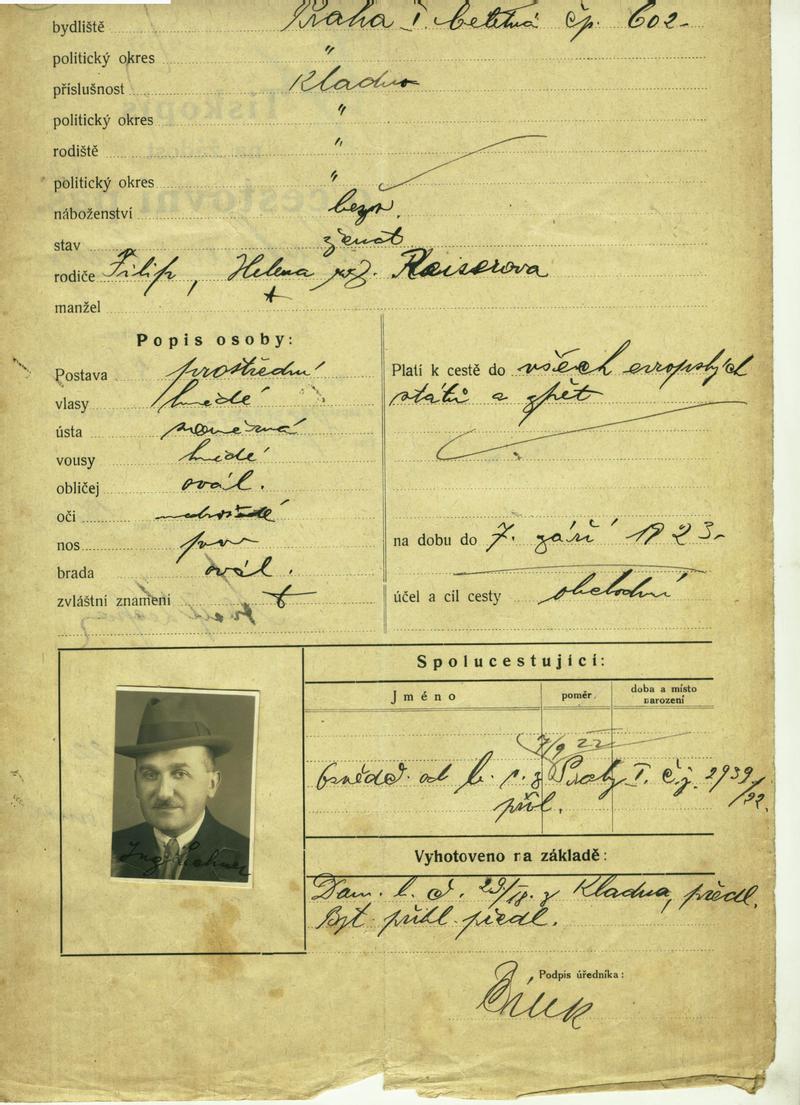 bydliště Praha I. čp. 602-
politický okres "
příslušnost Kladno
politický okres "
rodiště "
politický okres "
náboženství bezv.
stav ženat
rodiče Filip, Helena roz. Reiserova
manžel
Popis osoby:
Postava prostřední
vlasy hnědé
ústa souměrná
vousy hnědé
obličej ovál.
oči
nos
brada ovál.
zvláštní znamení
Platí k cestě do všech evropských
států a zpět
na dobu do 7. září 1923-
účel a cil cesty obchodní
Spolucestující:
Jméno
poměr
doba a místo
narození
7/9 22
Osvědč. od b. ř. z Prahy I. č.j. 2939/22
přil.
Vyhotoveno na základě:
Dom. l. d. z Kladna, předl.
Byt. přihl. předl.
Podpis úředníka:
Bílek
Ing Lechner